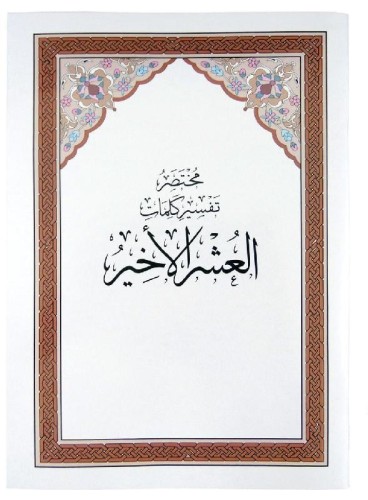 مُخْتَصَرُ
تَفْسِيرِ كَلِمَاتِ
العُشْرِ الأَخِيرِ